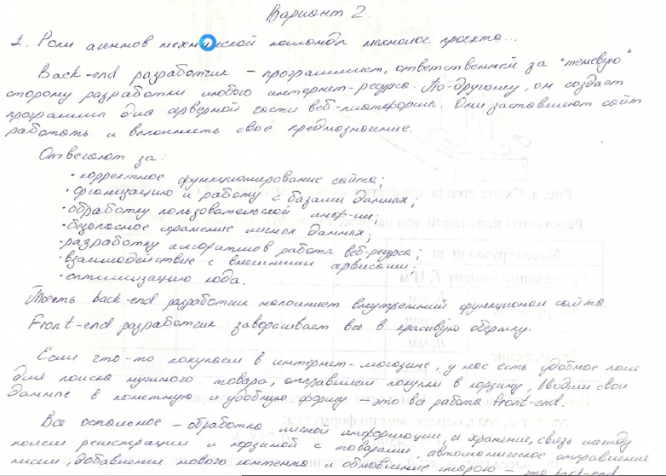 Вариант 2.
1. Роли агентов технической команды технолог. проекта...
Back-end разработчик – программист, ответственный за "теневую"
сторону разработки любого интернет-ресурса. По-другому, он создает
программы для серверной части веб-платформы. Они заставляют сайт
работать и выполнять свое предназначение.
Отвечают за:
· корректное функционирование сайта;
· организацию и работу с базами данных;
· обработку пользовательской инф-ии;
· безопасное хранение личных данных;
· разработку алгоритмов работы веб-ресурса;
· взаимодействие с внешними сервисами;
· оптимизацию кода.
То есть back-end разработчик наполняет внутренний функционал сайта.
Front-end разработчик заворачивает все в красивую обертку.
Если что-то покупаем в интернет-магазине, у нас есть удобное поле
для поиска нужного товара, отправляем покупки в корзину, вводим свои
данные в понятную и удобную форму – это все работа front-end.
Все остальное – обработка личной информации, ее хранение, связь между
полем регистрации и корзиной с товарами, автоматическое отправление
писем, добавление нового контента и обновление старого – это back-end